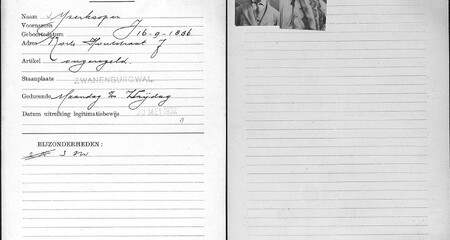 Naam
Voornamen J
Geboortedatum 16-9-1886
Adres Korte Houtstraat 7
Artikel ongeregeld
Staanplaats ZWANENBURGWAL
Gedurende Maandag t/m Vrijdag
Datum uitreiking legitimatiebewijs
BIJZONDERHEDEN:
3 M